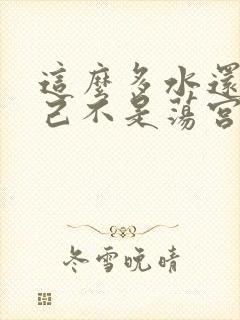 這麼多水還
己不是蕩宮
冬雪晚晴